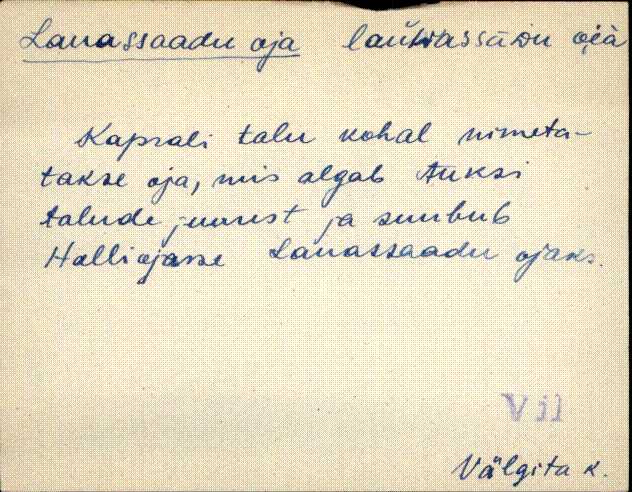 Lauassaadu oja lau̬vassāDu oi̯à
Kaprali talu kohal nimeta-
takse oja, mis algab Auksi
talude juurest ja suubub
Halliojasse Lauassaadu ojaks.
Vil
Välgita k.